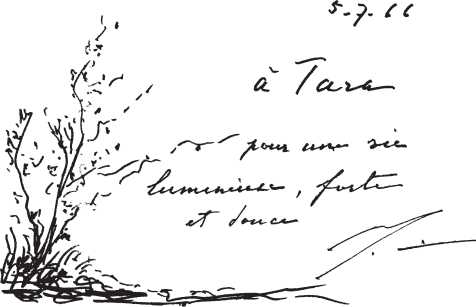 5-7-66
à Tara
pour une vie
lumineuse, forte
et douce